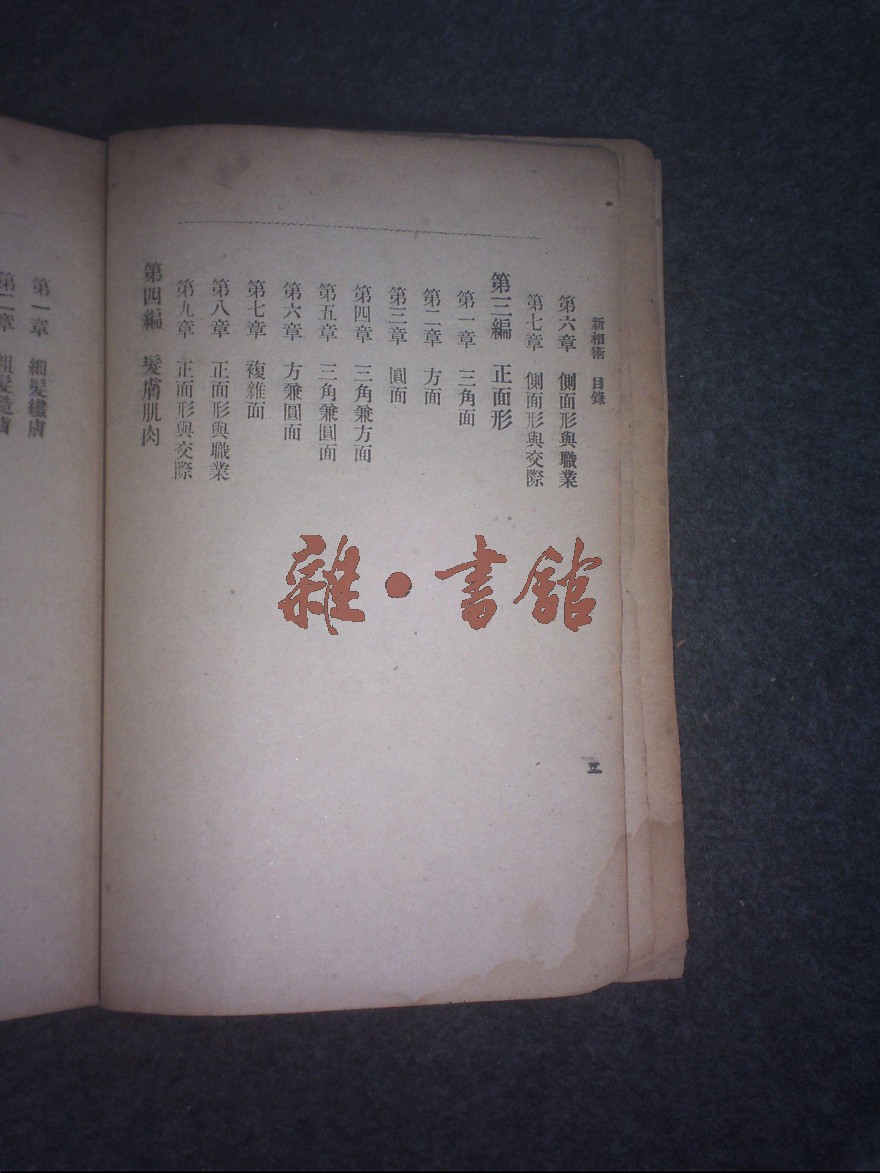 新相術　目錄
第六章　側面形與職業
第七章　側面形與交際
第三編　正面形
第一章　三角面
第二章　方面
第三章　圓面
第四章　三角兼方面
第五章　三角兼圓面
第六章　方兼圓面
第七章　複雜面
第八章　正面形與職業
第九章　正面形與交際
第四編　髮膚肌肉
五
第一章　細髮纖膚
第二章　粗髮糙膚
雜・書館